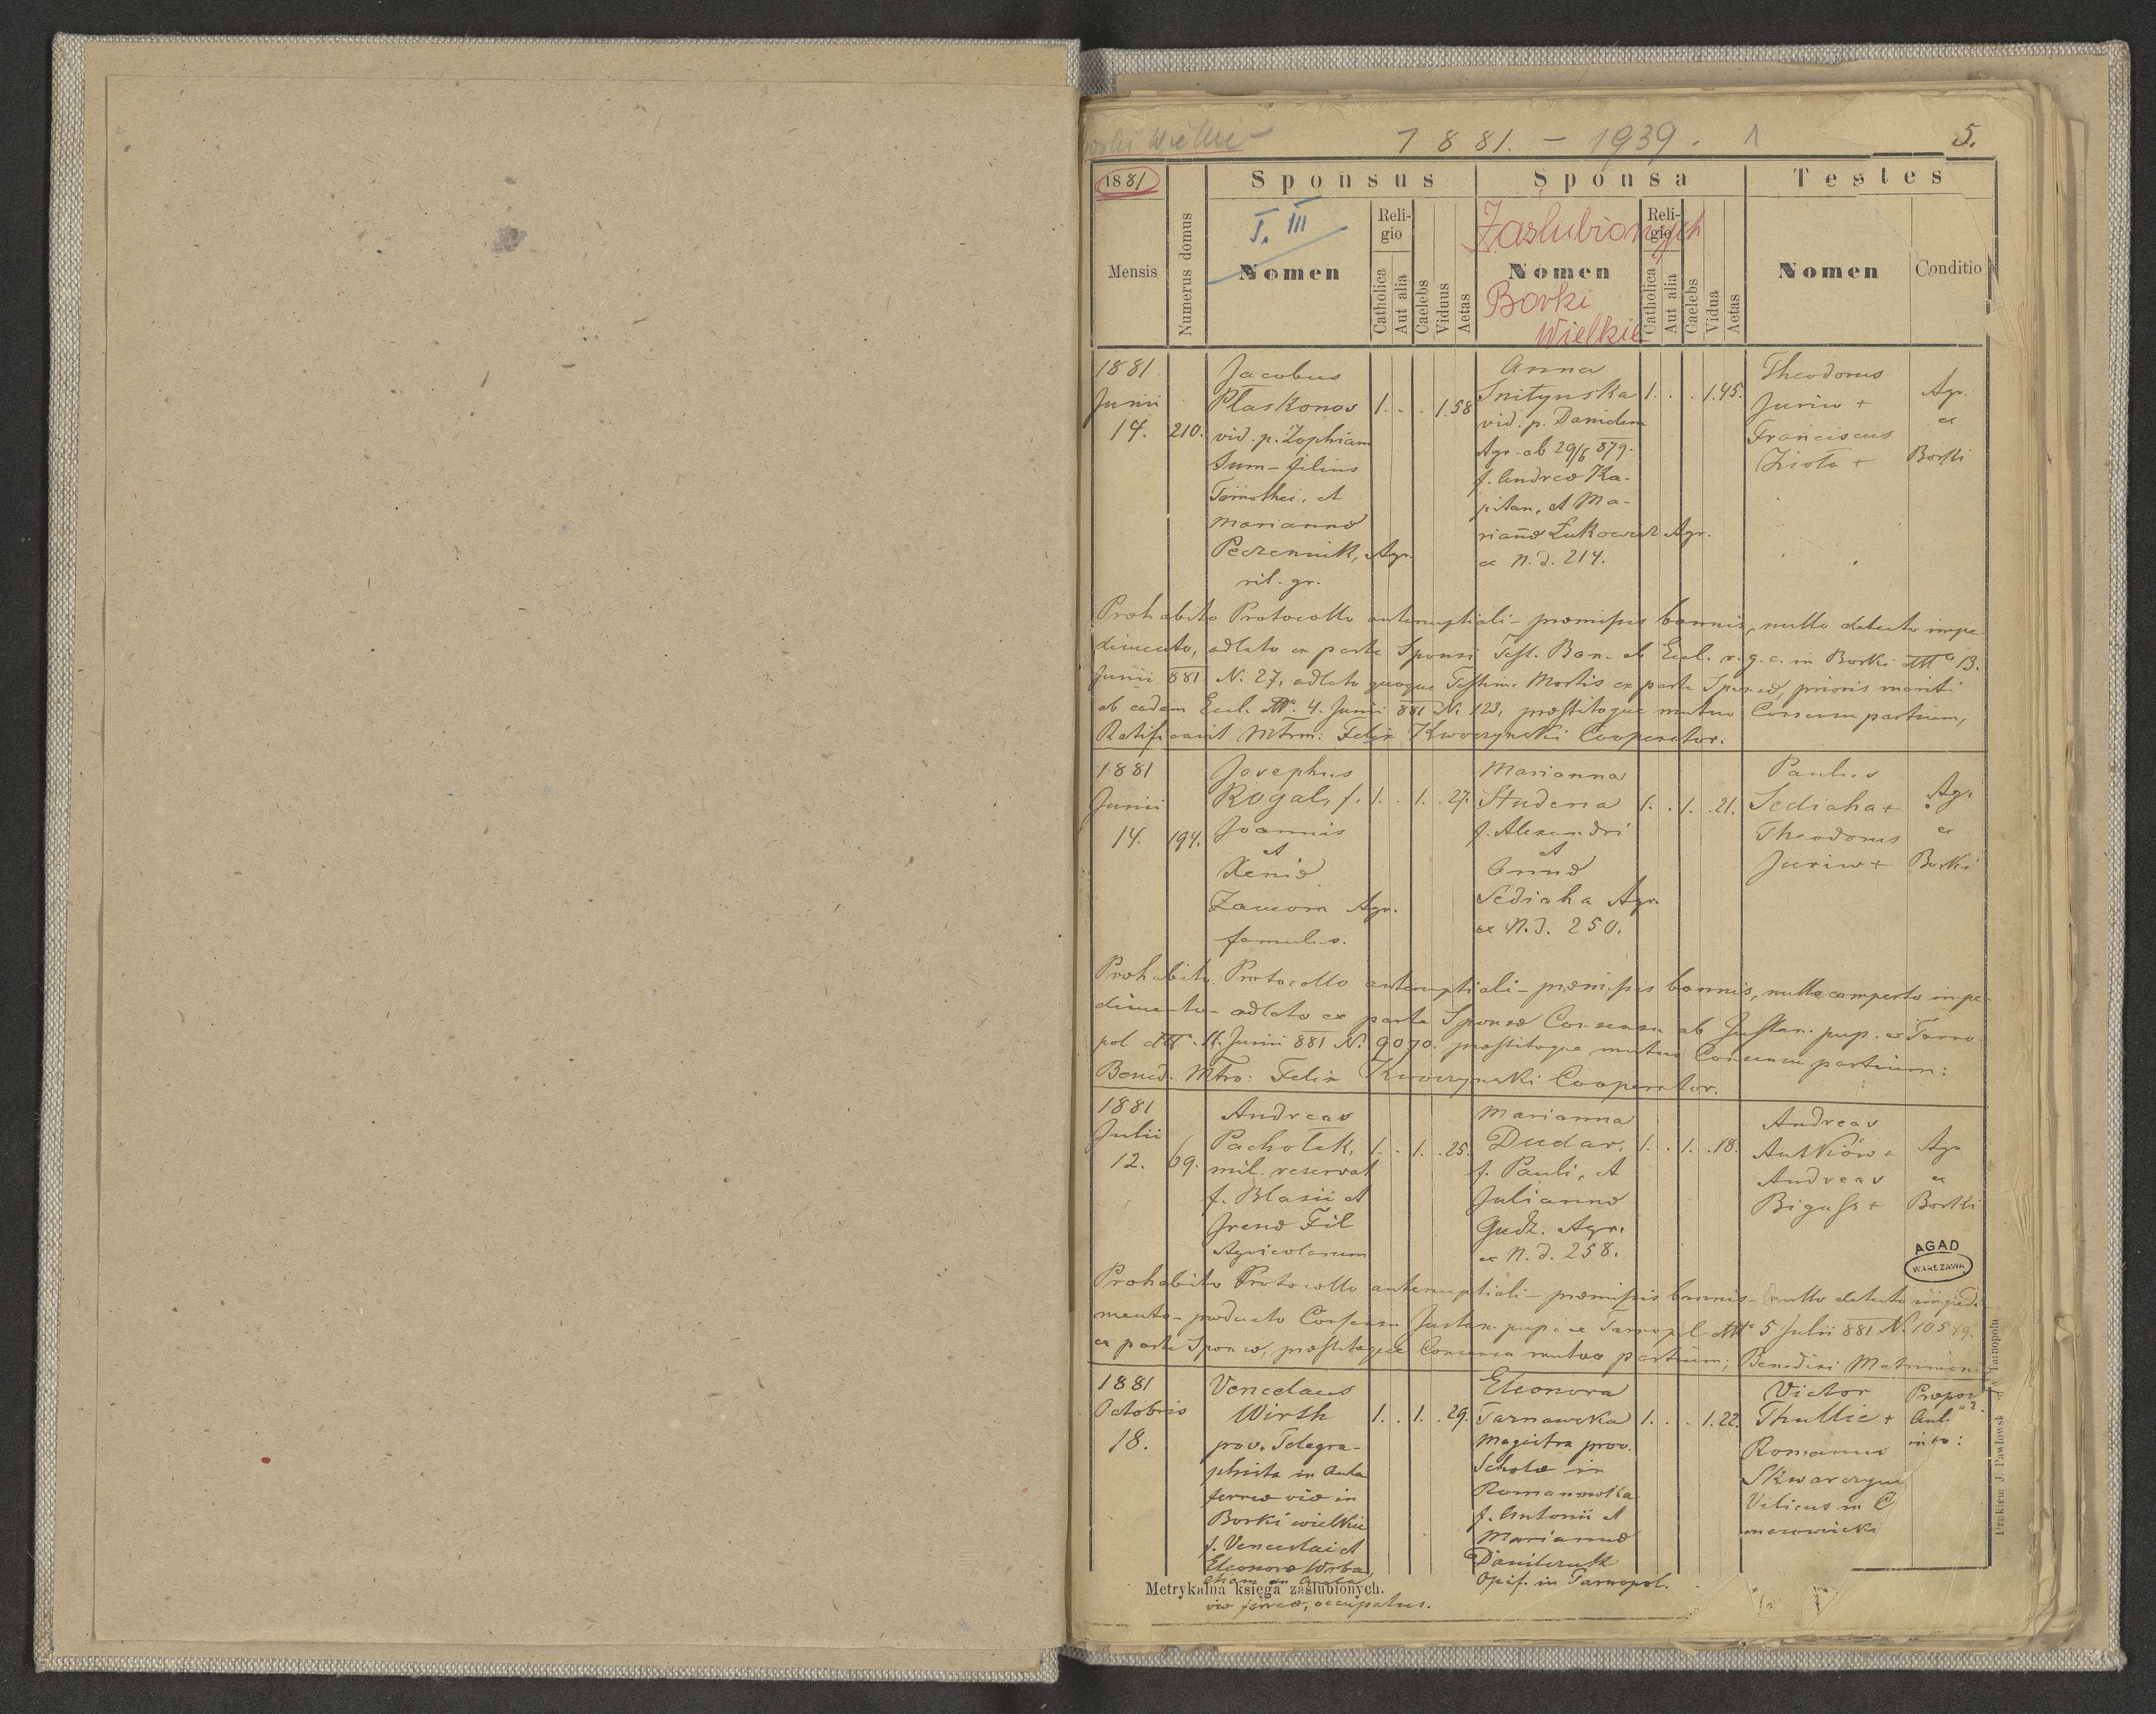 Borki Wielkie
1881. - 1939. 1
5.
1881
Sponsus
Sponsa
Testes
Mensis
Numerus domus
T. III
Nomen
Religio
Catholica
Aut alia
Caelebs
Viduus
Aetas
Zaślubionych
Nomen
Borki
Wielkie
Religio
Catholica
Aut alia
Caelebs
Vidua
Aetas
Nomen
Conditio
1881
Junii
14. 210.
Jacobus
Płaskonos 1. . . 1. 58
vid. p. Zophiam
Sum - filius
Timothei, et
Mariannæ
Peczennik, Agr.
rit. gr.
Anna
Snitynska 1. . . 1. 45.
vid. p. Danielem
Agr. ab 29/6 879.
f. Andreæ Ka-
pitan, et Ma-
riannæ Łukowicz Agr.
ex N. d. 214.
Theodorus
Juriw +
Franciscus
Zioła +
Agr.
ex
Borki
Prohabito Protocollo antenuptiali - præmissis bannis, nullo detecto impe-
dimento, adlato ex parte Sponsi Test. Ban. ab Eccl. r. g. c. in Borki dtto 13.
Junii 881 N. 27, adlato quoque Testim. Mortis ex parte Sponsæ, prioris mariti
ab eadem Eccl. dtto. 4. Junii 881 N. 123, præstitoque mutuo Consensu partium,
Ratificavit Mtrm: Felix Kwoczynski Cooperator.
1881
Junii
14. 194.
Josephus
Rogal, f. 1. . 1. . 27.
Joannis
et
Xeniæ
Zamora Agr.
famulus.
Marianna
Studena 1. . 1. . 21.
f. Alexandri
et
Annæ
Sediaha Agr.
ex N. d. 250.
Paulus
Sediaha +
Theodorus
Juriw +
Agr.
ex
Borki
Prohabito Protocollo antenuptiali - præmissis bannis, nullo comperto impe-
dimento - adlato ex parte Sponsæ Consensu ab Instan. pup. ex Tarno-
pol dtto. 11. Junii 881 N. 9070. præstitoque mutuo Consensu partium:
Bened. Mtro: Felix Kwoczynski Cooperator.
1881
Julii
12. 69.
Andreas
Pachołek, 1. . 1. . 25.
mil. reservat
f. Blasii et
Irenæ Fil
Agricolarum
Marianna
Dudar, 1. . 1. . 18.
f. Pauli, et
Juliannæ
Gudz. Agr.
ex N. d. 258.
Andreas
Antków +
Andreas
Biguss +
Agr.
ex
Borki
AGAD
WARSZAWA
Prohabito Protocollo antenuptiali - præmissis bannis - nullo detecto impedi-
mento - producto Consensu Instan. pup. ex Tarnopol dtto 5 Julii 881 N. 10549.
ex parte Sponsæ, præstitoque Consensu mutuo partium; Benedixi Matrimoni
1881
Octobris
18.
Venceslaus
Wirth 1. . 1. . 29.
prov. Telegra-
phista in Aula
ferreæ viæ in
Borki wielkie
f. Venceslai et
Eleonoræ Wrba
etiam in Aula
viæ ferreæ, occupatus.
Eleonora
Tarnawska 1. . . 1. 22.
Magistra prov.
Scholæ in
Romanowka
f. Antonii et
Mariannæ
Danilczuk
Opif. in Tarnopol.
Victor
Thullie +
Romanus
Skwarczyn
Vilicus in C
Metrykalna księga zaślubionych.
Drukiem J. Pawłowski w Tarnopolu